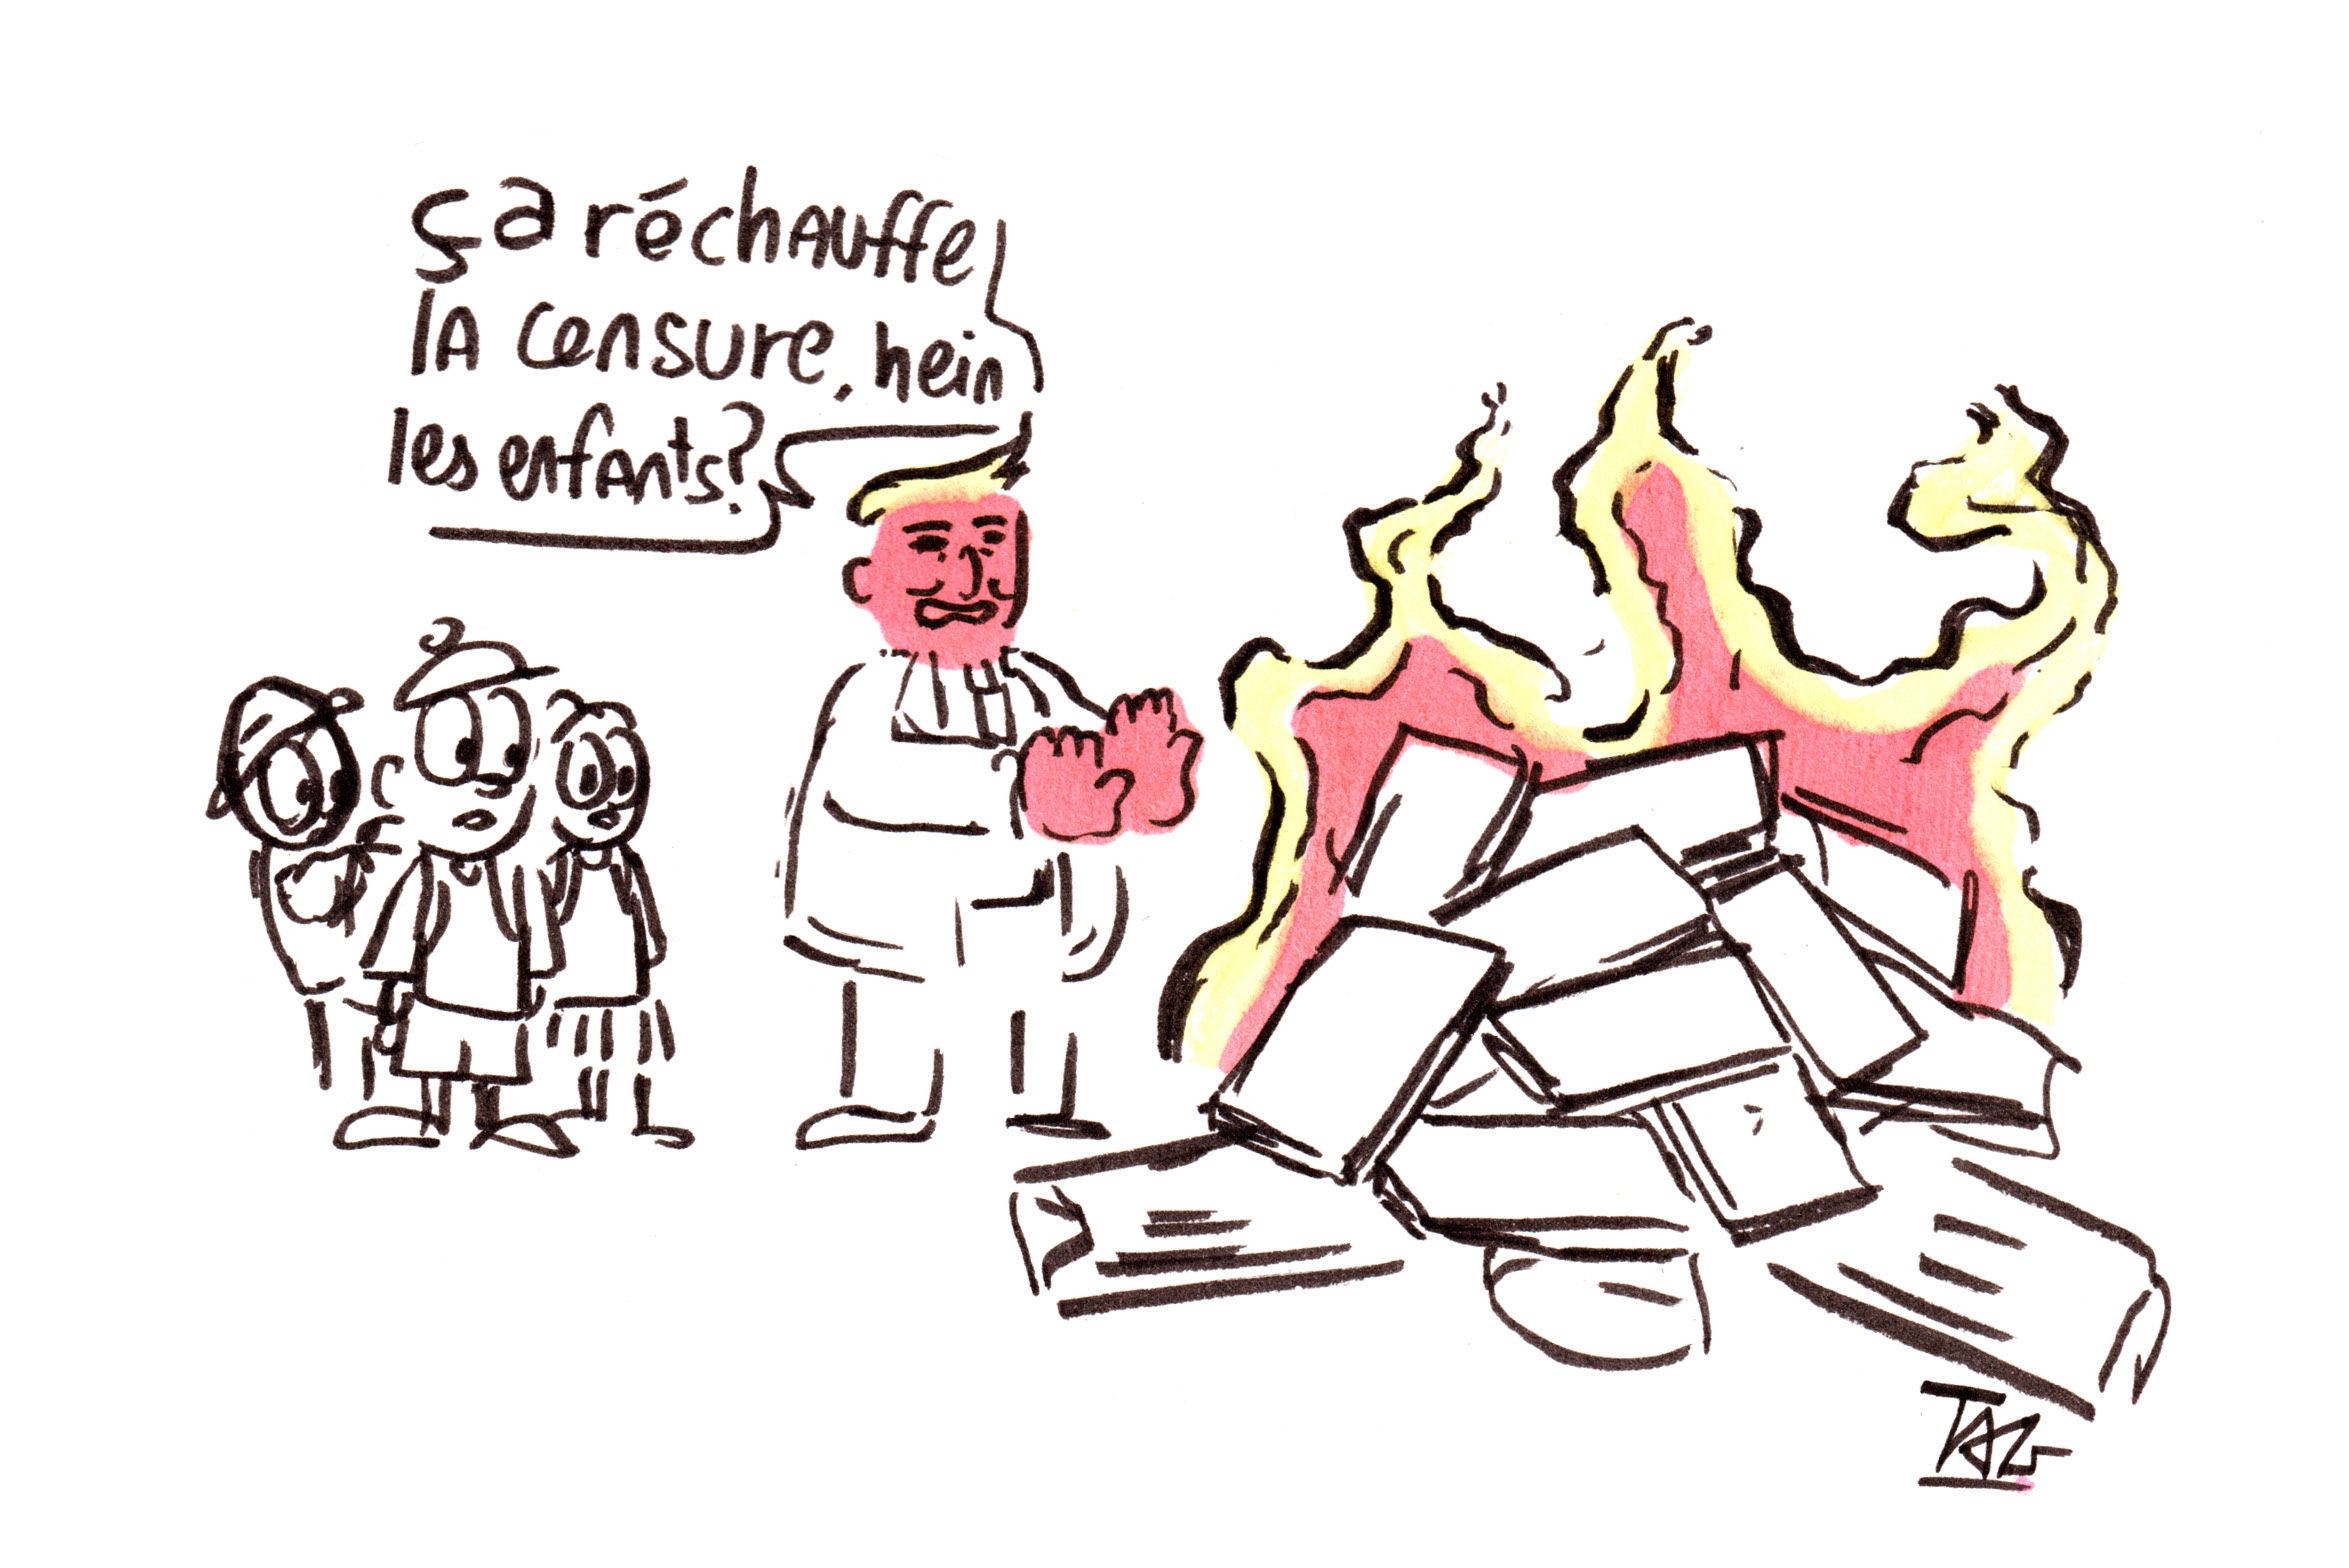 ça réchauffe
la censure, hein
les enfants?